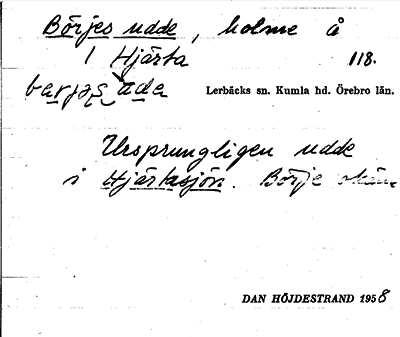 Börjes udde, holme å
1 Hjärta 118.
Lerbäcks sn. Kumla hd. Örebro län.
Ursprungligen udde
i Hjärtasjön. Börje
DAN HÖJDESTRAND 1958